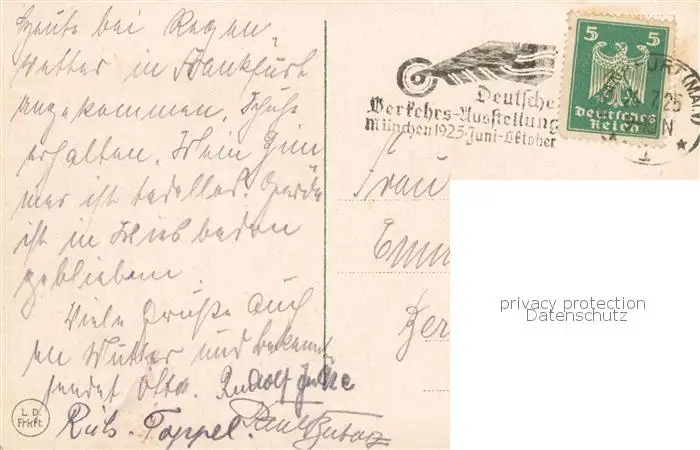 Heute bei Regen-
wetter in Frankfurt
angekommen. Schuhe
erhalten. Mein Zim
mer ist tadellos. Gerda
ist in Wiesbaden
geblieben.
Viele Grüße auch
an Mutter und Bekannte
sendet Otto. Rudolf
Rich. Toppel. Paul
L. D.
Frkft.
Deutsche
Verkehrs-Ausstellung
München 1925 Juni-Oktober
5 5
Deutsches
Reich
FURT (MAIN)
7.25
N
1
Frau
Emm
Ber
privacy protection
Datenschutz